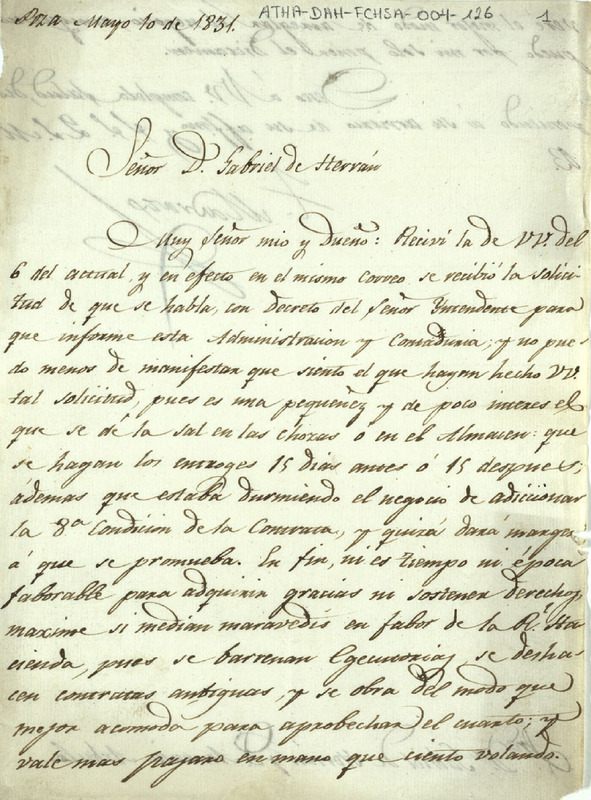 Poza Mayo 10 de 1831.
ATHA-DAH-FCHSA-004-126
1
Señor D. Gabriel de Herrán
Muy Señor mio y dueño: Reciví la de VV. del
6 del actual, y en efecto en el mismo Correo se recibió la solici-
tud de que se habla, con decreto del Señor Yntendente para
que informe esta Administracion y Contaduria; y no pue-
do menos de manifestar que siento el que hayan hecho VV.
tal solicitud, pues es una pequeñez y de poco interes el
que se dé la sal en las chozas ó en el Almacen: que
se hagan los entroges 15 dias antes ó 15 despues;
ádemas que estaba durmiendo el negocio de adicionar
la 8.ª Condicion de la Contrata, y quizá dará margen
á que se promueba. En fin, ni es tiempo ni época
faborable para adquirir gracias ni sostener derechos,
maxime si median maravedis en fabor de la R.l Ha-
cienda, pues se barrenan Egecutorias, se desha-
cen contratas antiguas, y se obra del modo que
mejor acomoda para aprobechar el cuarto; y
vale mas pajaro en mano que ciento volando.